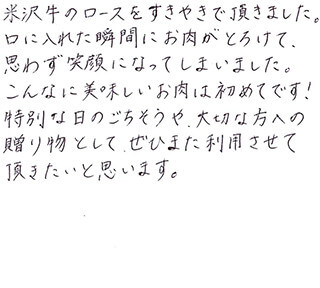 米沢牛のロースをすきやきで頂きました。
口に入れた瞬間にお肉がとろけて、
思わず笑顔になってしまいました。
こんなに美味しいお肉は初めてです!
特別な日のごちそうや、大切な方への
贈り物として、ぜひまた利用させて
頂きたいと思います。